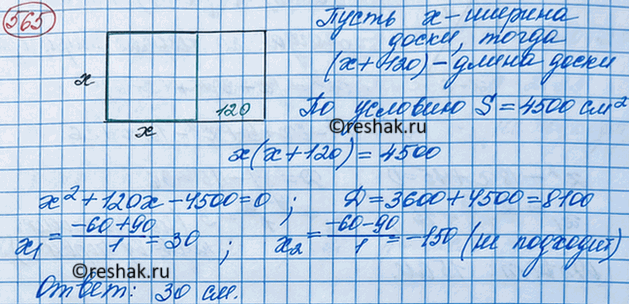 565
Пусть x - ширина
доски, тогда
(x+120) - длина доски
x
120
x
По условию S = 4500 см²
©reshak.ru
x(x+120) = 4500
x² + 120x - 4500 = 0 ; D = 3600 + 4500 = 8100
x₁ = (-60+90)/1 = 30 ; x₂ = (-60-90)/1 = -150 (не подходит)
©reshak.ru
Ответ: 30 см.